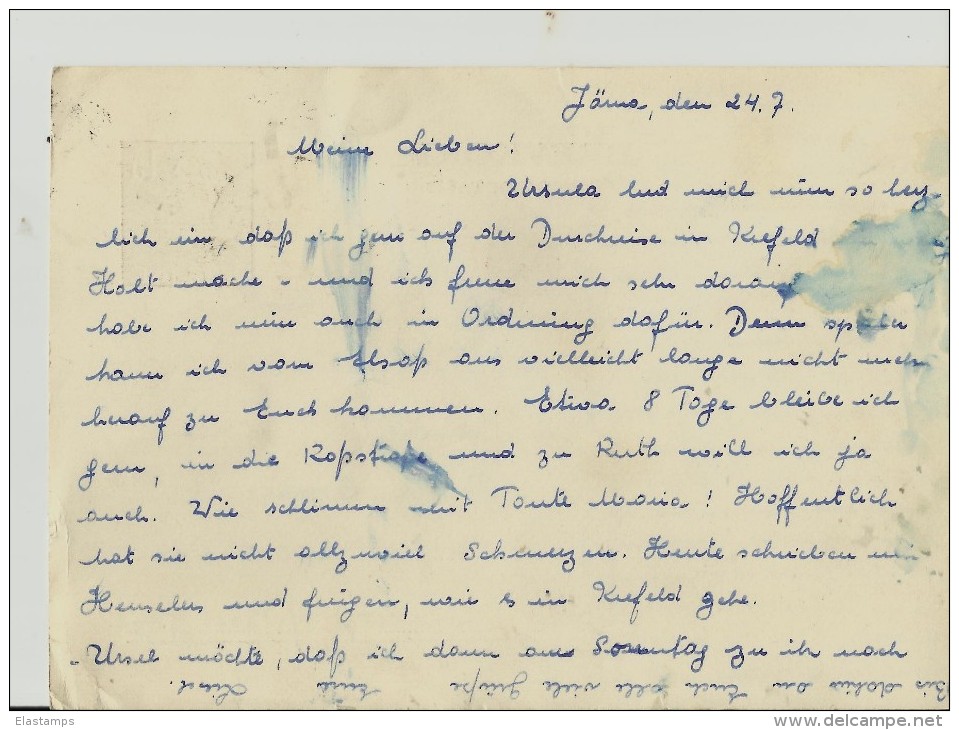 Jäma, den 24. 7.
Meine Lieben!
Ursula lud mich nun so herz-
lich ein, daß ich gern auf der Durchreise in Krefeld
Halt mache - und ich freue mich sehr darauf
habe ich nun auch in Ordnung dafür. Denn später
kann ich vom Elsaß aus vielleicht lange nicht mehr
herauf zu Euch kommen. Etwa 8 Tage bleibe ich
gern, in die Roßstraße und zu Ruth will ich ja
auch. Wie schlimm mit Tante Maria! Hoffentlich
hat sie nicht allzuviel Schmerzen. Heute schrieben mir
Henselers und fragen, wie es in Krefeld gehe.
- Ursel möchte, daß ich dann am Sonntag zu ihr nach
Bis dahin an Euch alle viele Grüße Eure Liesel.
Elastamps
www.delcampe.net